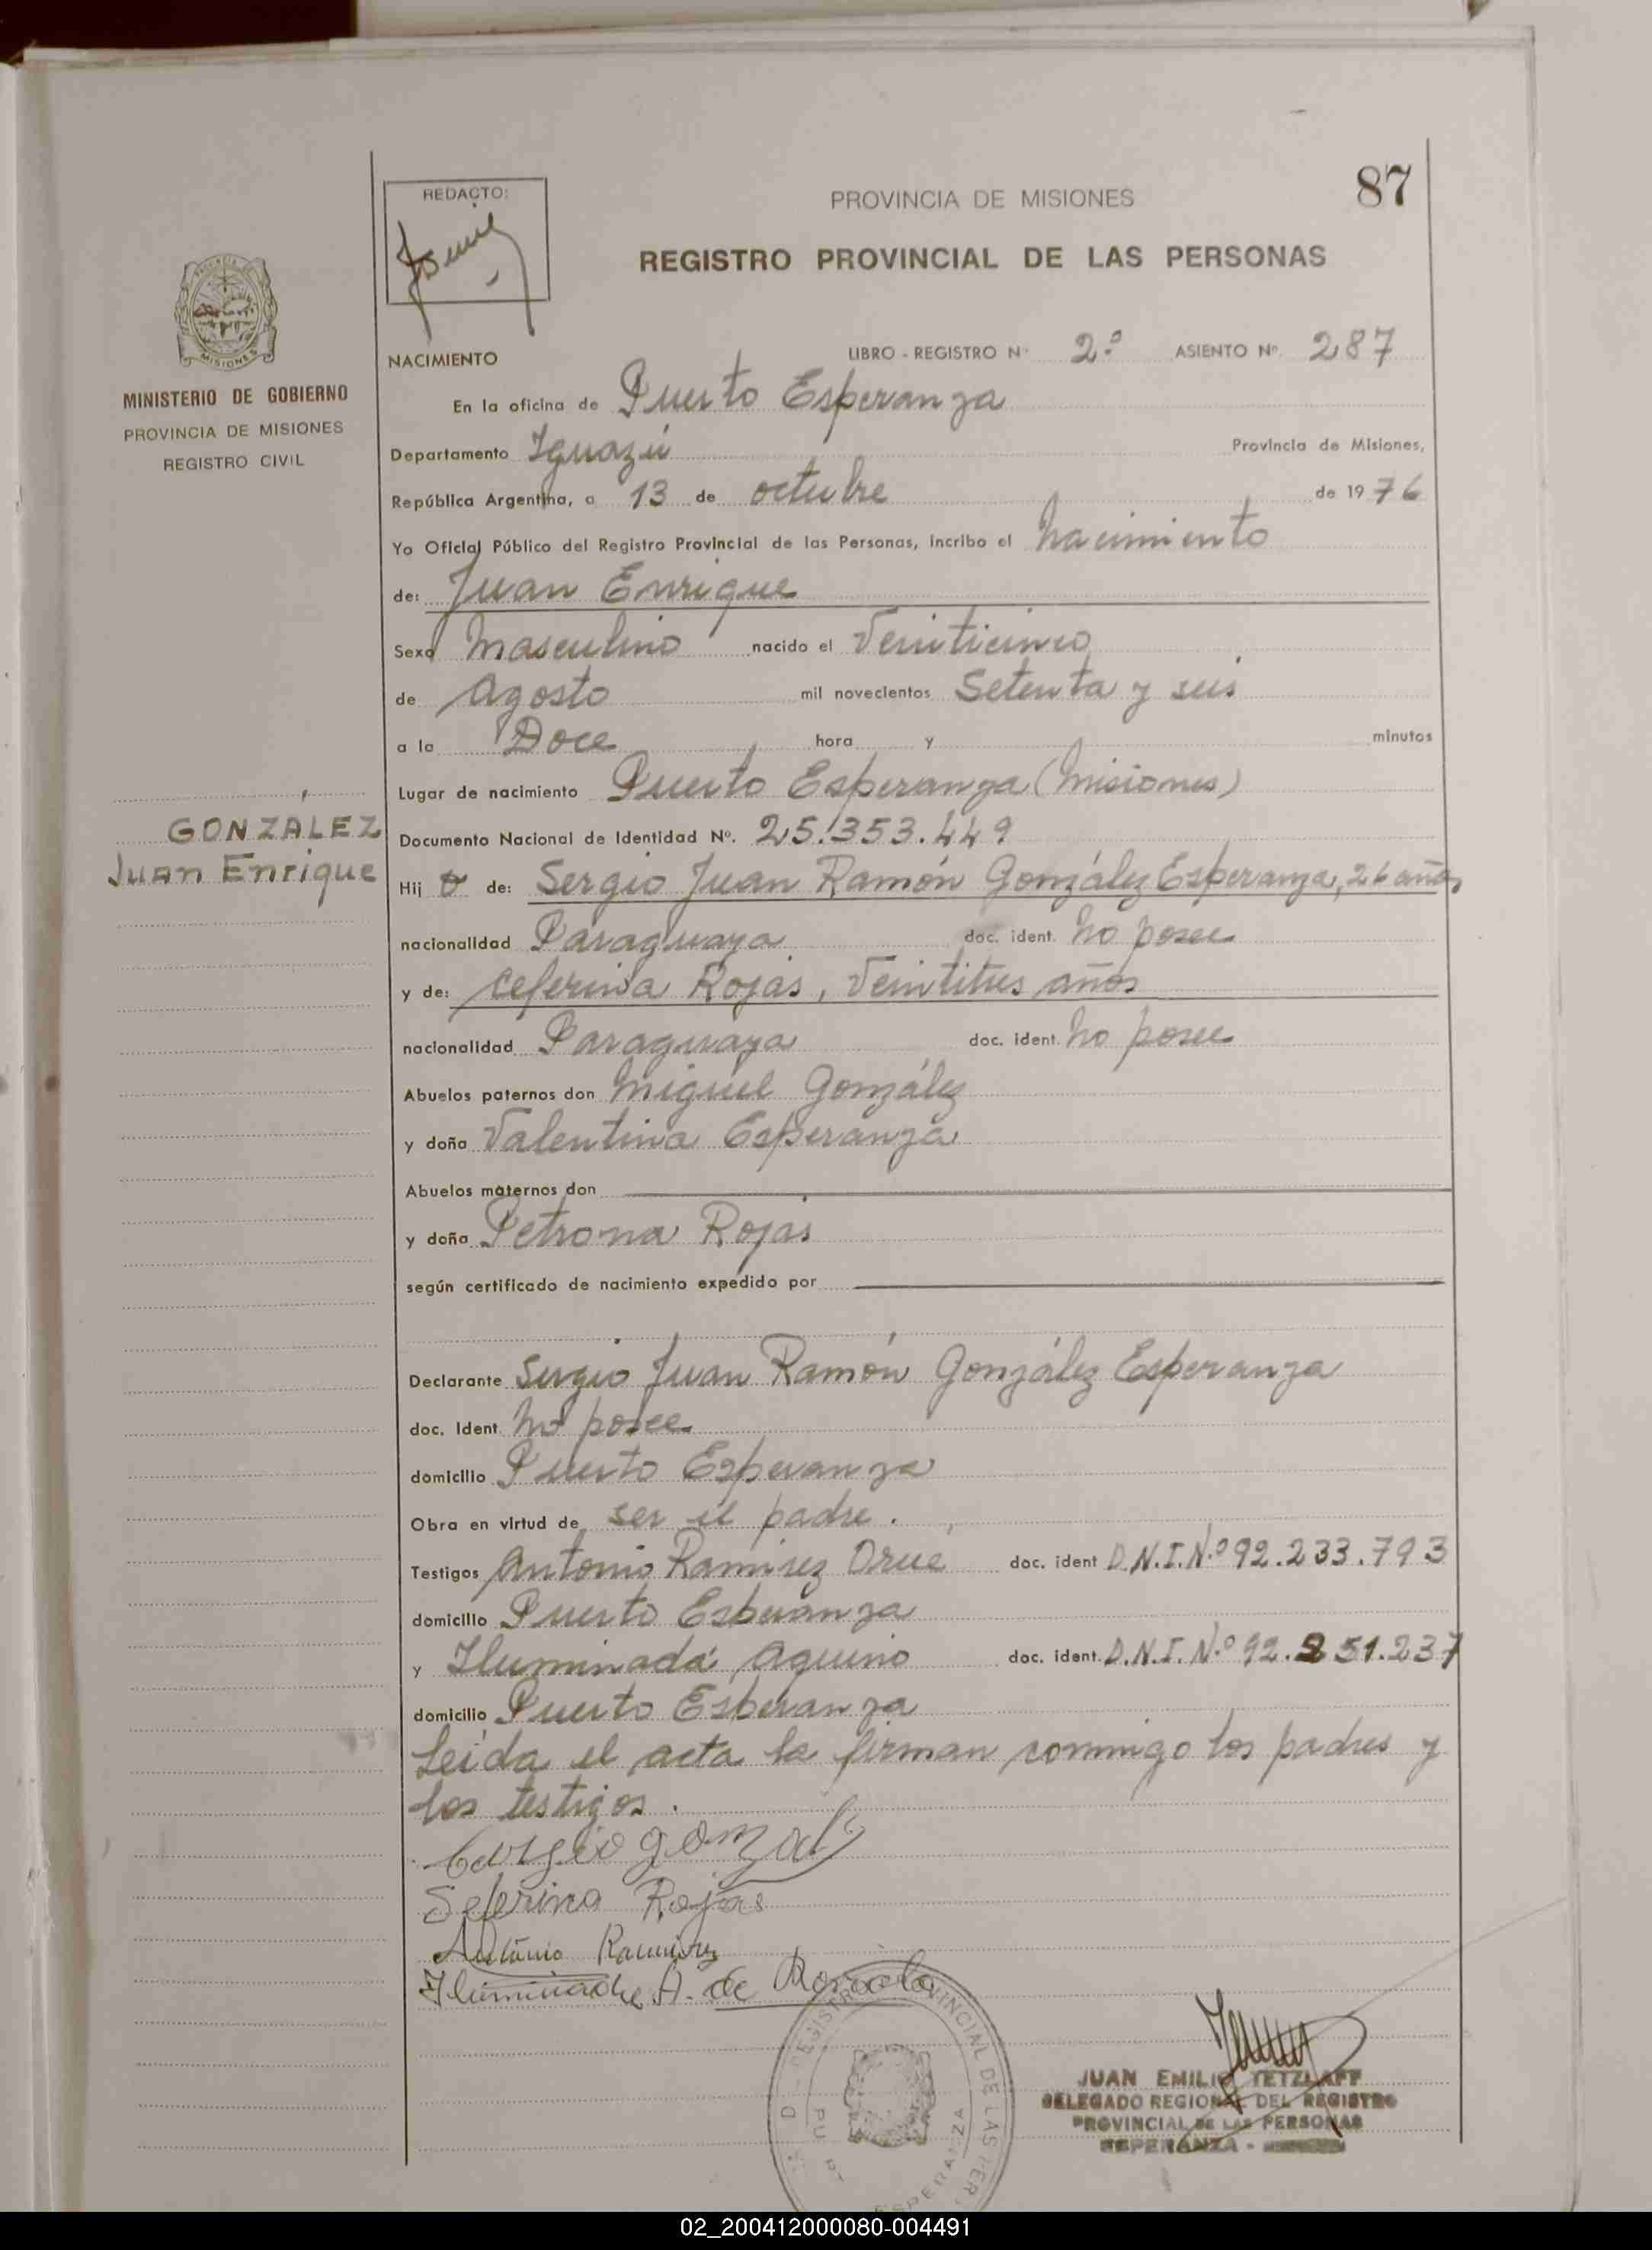 87
REDACTO:
PROVINCIA DE MISIONES
REGISTRO PROVINCIAL DE LAS PERSONAS
MISIONES
MINISTERIO DE GOBIERNO
PROVINCIA DE MISIONES
REGISTRO CIVIL
NACIMIENTO LIBRO - REGISTRO Nº 2º ASIENTO Nº. 287
En la oficina de Puerto Esperanza
Departamento Iguazú Provincia de Misiones,
República Argentina, a 13 de octubre de 1976
Yo Oficial Público del Registro Provincial de las Personas, incribo el nacimiento
de: Juan Enrique
Sexo Masculino nacido el Veinticinco
de Agosto mil novecientos Setenta y seis
a la Doce hora y minutos
Lugar de nacimiento Puerto Esperanza (Misiones)
GONZÁLEZ
Juan Enrique
Documento Nacional de Identidad Nº. 25.353.449
Hijo de: Sergio Juan Ramón González Esperanza, 26 años
nacionalidad Paraguaya doc. ident. no posee
y de: Ceferina Rojas, Veintitres años
nacionalidad Paraguaya doc. ident. no posee
Abuelos paternos don Miguel González
y doña Valentina Esperanza
Abuelos maternos don
y doña Petrona Rojas
según certificado de nacimiento expedido por
Declarante Sergio Juan Ramón González Esperanza
doc. Ident. no posee
domicilio Puerto Esperanza
Obra en virtud de ser el padre.
Testigos Antonio Ramirez Orue doc. ident D.N.I.Nº 92.233.793
domicilio Puerto Esperanza
y Iluminada Aquino doc. ident. D.N.I. Nº 92.251.237
domicilio Puerto Esperanza
Leída el acta la firman conmigo los padres y
los testigos.
Sergio Gonzalz
Seferina Rojas
Antonio Ramirez
Iluminada A. de
REGISTRO PROVINCIAL DE LAS PER
ESPERANZA
JUAN EMILIO TETZLAFF
DELEGADO REGIONAL DEL REGISTRO
PROVINCIAL DE LAS PERSONAS
ESPERANZA -
02_200412000080-004491